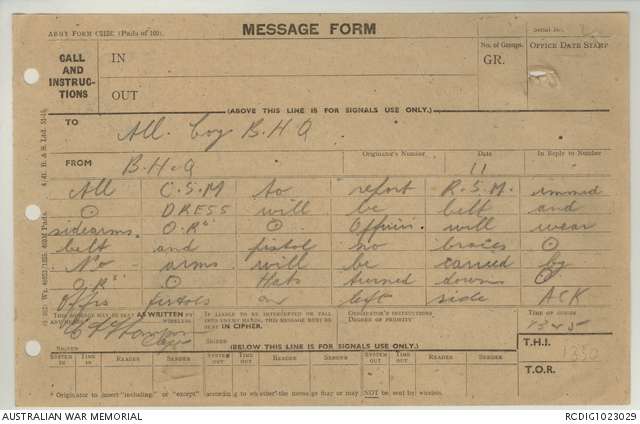 ARMY FORM C2128 (Pads of 100).
MESSAGE FORM
Serial No.
CALL AND INSTRUCTIONS
IN
OUT
No. of Groups.
GR.
OFFICE DATE STAMP
(ABOVE THIS LINE IS FOR SIGNALS USE ONLY.)
TO
All. Coy B.H.Q
FROM
B.H.Q
Originator's Number
Date
11
In Reply to Number
All C.S.M to report R.S.M. immed
⊙ DRESS will be belt and
sidearms. O.R's ⊙ Officers will wear
belt and pistol no braces ⊙
No arms will be carried by
O.R's ⊙ Hats turned down ⊙
Offrs pistols on left side ACK
THIS MESSAGE MAY BE SENT AS WRITTEN BY ANY MEANS
WIRELESS
IF LIABLE TO BE INTERCEPTED OR FALL INTO ENEMY HANDS, THIS MESSAGE MUST BE SENT IN CIPHER.
ORIGINATOR'S INSTRUCTIONS
DEGREE OF PRIORITY
TIME OF ORIGIN
1325
SIGNED
SIGNED
(BELOW THIS LINE IS FOR SIGNALS USE ONLY.)
T.H.I.
1330
SYSTEM IN
TIME IN
READER
SENDER
SYSTEM OUT
TIME OUT
READER
SENDER
SYSTEM OUT
TIME OUT
READER
SENDER
T.O.R.
* Originator to insert "including" or "except" according to whether the message may or may NOT be sent by wireless.
AUSTRALIAN WAR MEMORIAL
RCDIG1023029